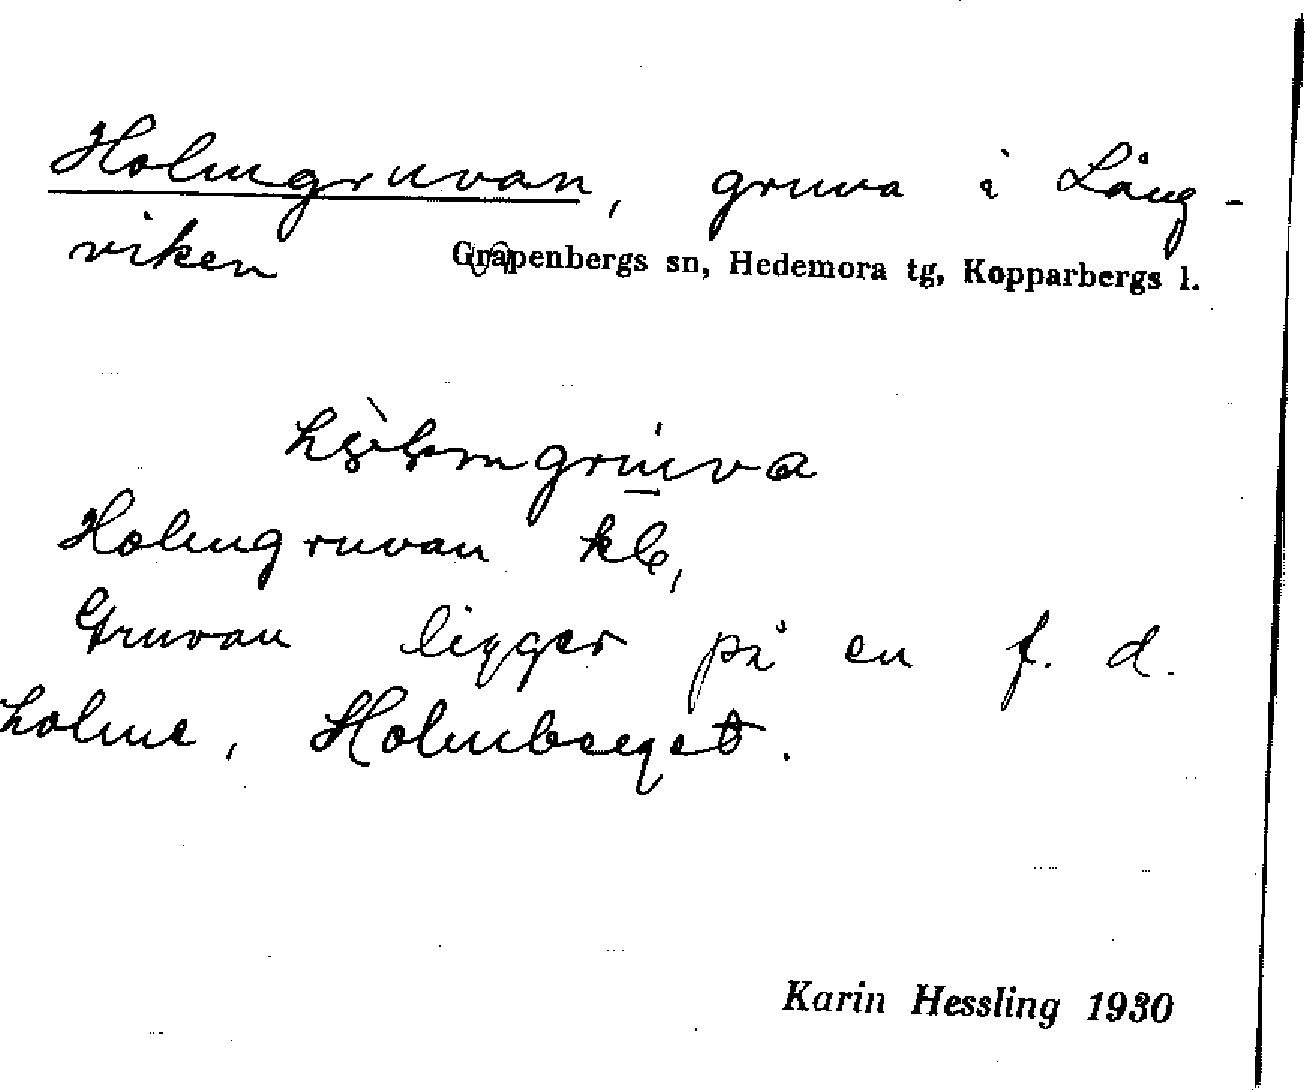 Holmgruvan, gruva i Lång-
viken Garpenbergs sn, Hedemora tg, Kopparbergs l.
Holmgruvan kb,
Gruvan ligger på en f. d.
holme, Holmberget.
Karin Hessling 1930